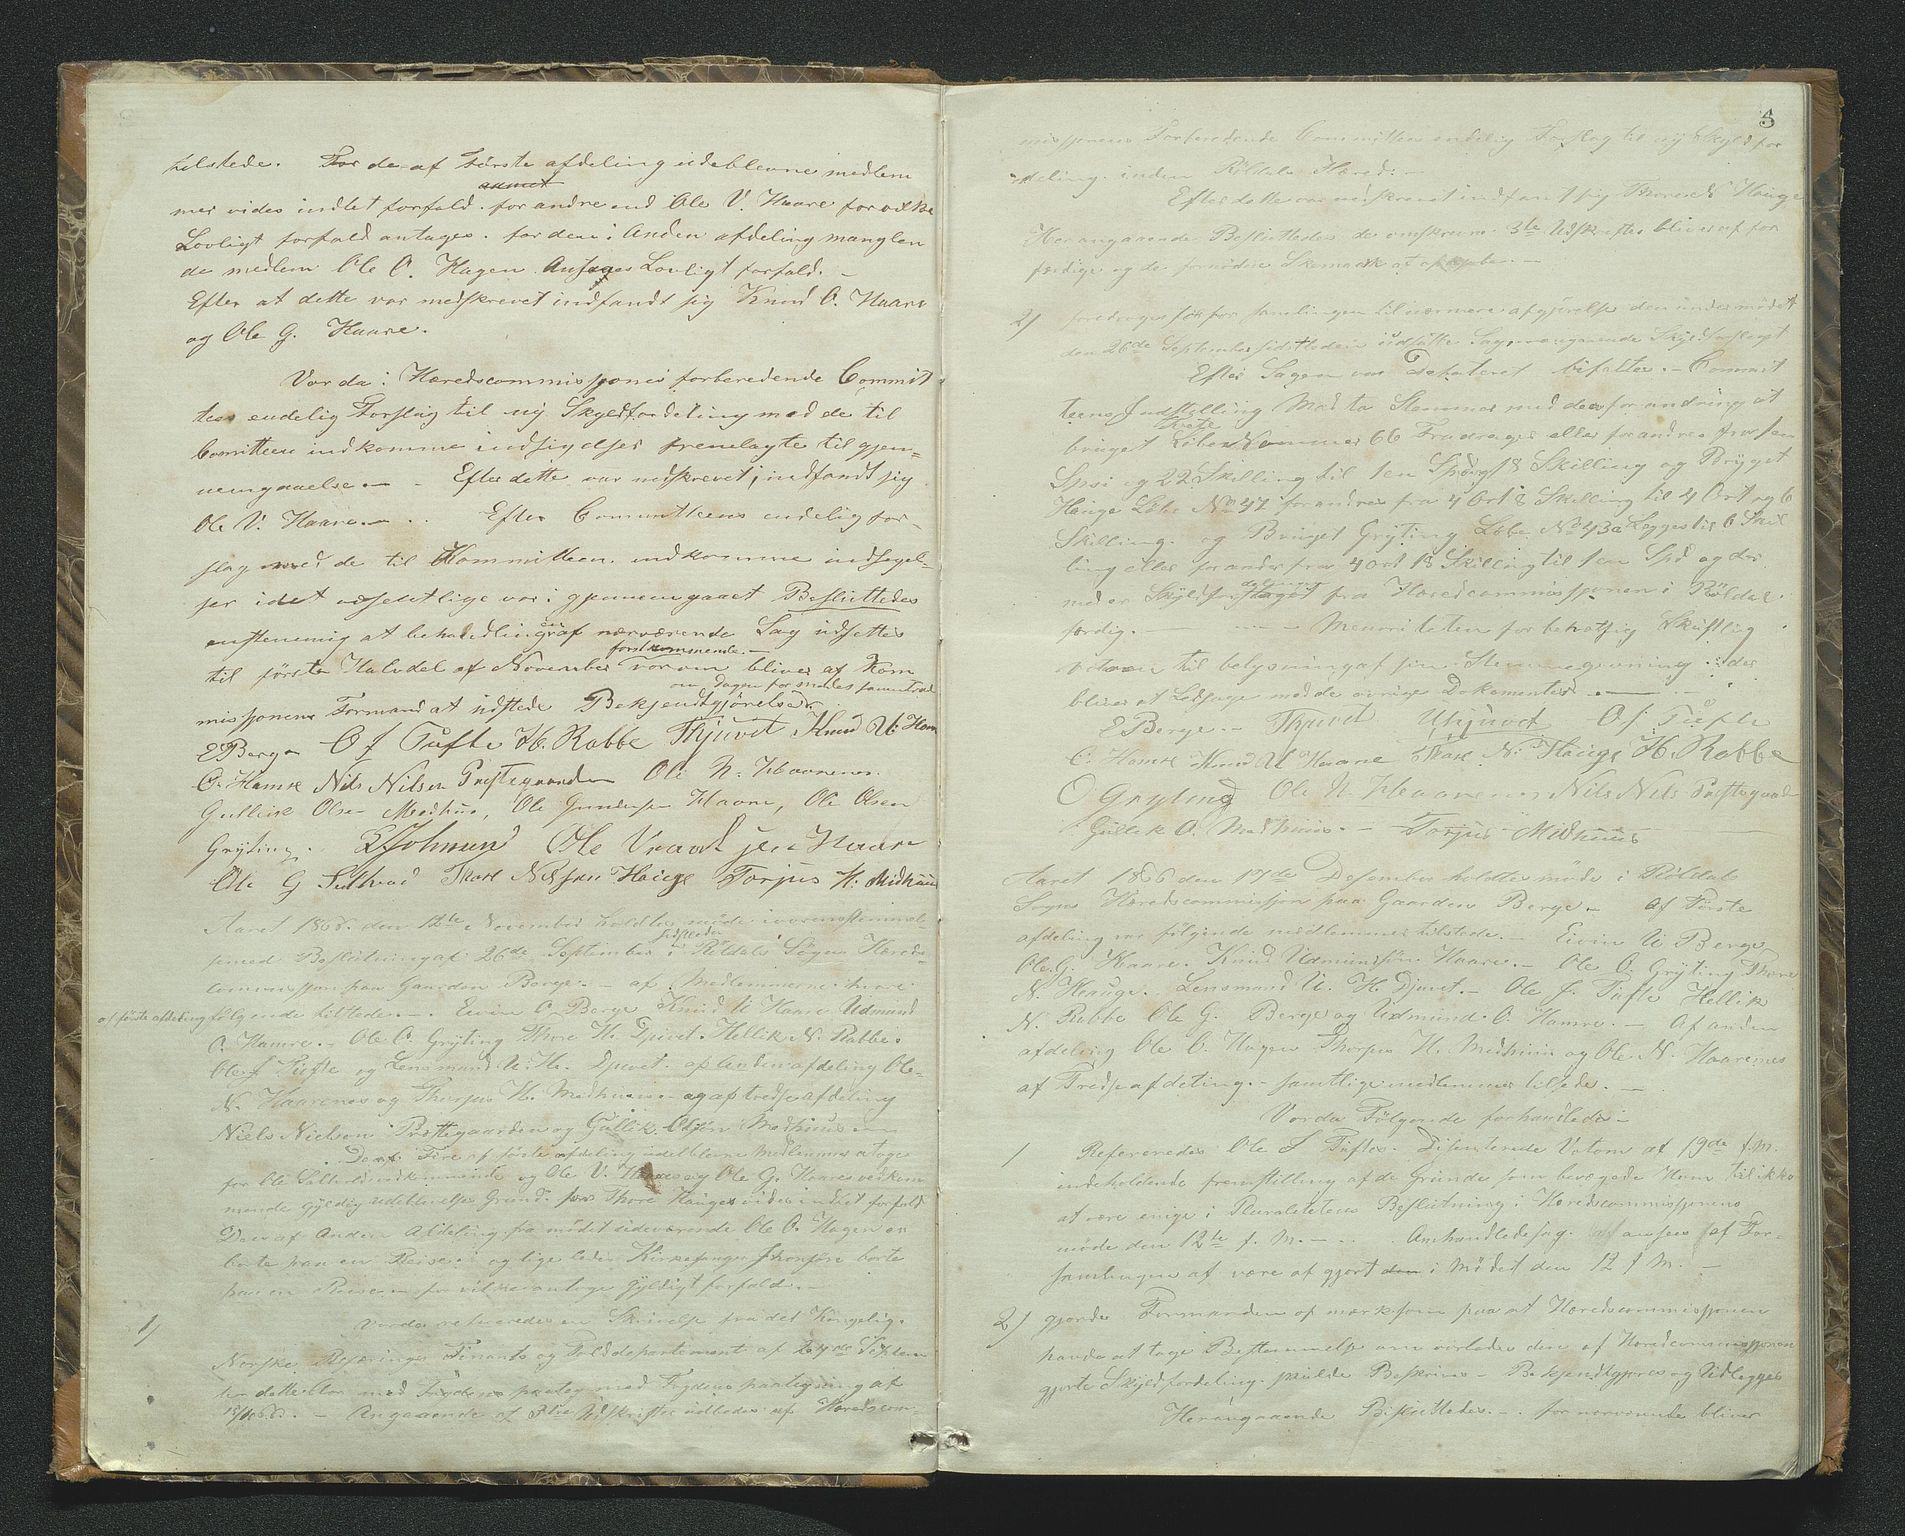 tilstede. For de af Første afdeling udeblevne medlem
mer vides indtet forfald. for andre end Ole V. Haare for vilke
Lovligt forfald antages. for den i Anden afdeling manglen
de medlem Ole O. Hagen Ansees Lovligt forfald. –
Efter at dette var nedskrevet indfandt sig Knud O. Haare
og Ole G. Haare.
Vor da i Heredscommissjones forberedende Commit
tees endelig Forslag til ny Skyldfordeling med de til
Comitteen indkomne indsigelser fremlagte til gjen-
nemgaaelse. – Efter dette var nedskrevet, indfandt sig
Ole V. Haare. – Efter Committeens endelig for-
slag med de til Kommitteen indkomne indsigel-
ser idet vesentlige var i gjennemgaaet Besluttedes
enstemmig at behandlingen af nærværende Sag udsettes
til første Halvdel af November førstkommende. – vorom bliver af Kom
missjonens Formand at udstede Bekjendtgjørelse om Dagen for
E Berge O J Tufte H. Rabbe Thjuvet Knud U. Haare
O. Hamre Nils Nilsen Prestegaarden Ole N. Haarenes
Gullik Olsen Medhuus, Ole Gunders Haare, Ole Olsen
Gryting. Ole Vraalsen Haare
Ole G Thore Nilssen Hauge Torjus H. Midhuus
Aaret 1866 den 12te November holdtes møde i overenstemmel-
se med Beslutning af 26de September sidstleden i Røldals Sogns Hereds-
commissjon paa Gaarden Berge. – af Medlemmerne vare
af første afdeling følgende tilstede. – Eivin O. Berge Knud U Haare Udmund
O. Hamre. – Ole O. Gryting Thore H. Djuvet. Hellik N. Rabbe.
Ole J Tufte og Lensmand U. H. Djuvet. af Anden afdeling Ole
N. Haarenes og Thorjus H. Medhuus – og af tredje afdeling
Niels Nielsen Prestegaarden og Gullik Olsøn Medhuus –
De af Fire af første afdeling udeblevne Medlemmer antages
for Ole vedkommende og Ole V. Haare og Ole G. Haares vedkom
mende gyldig udeblivelses Grund. for Thore Hauge vides indtet forfald
Den af Anden Afdeling fra mødet udeværende Ole O. Hagen er
borte paa en Reise og lige leden Kirkesanger borte
paa en Reise – for vilke antages gyldigt forfald. –
1/ Vorda refereredes en Skrivelse fra det Kongelig.
Norske Regerings Finants og Tolddepartement af 24de Septem
ber dette Aar med Fogdens paategning af
15/10 66. – Angaaende af 3de Udskrifter udstedes af Heredscom-
5
missjonens Forberedende Committees endelig Forslag til ny Skyldfor
deling inden Røldals Hered. –
Efter dette var nedskrevet indfandt sig Thore N Hauge
Herangaaende Besluttedes de omskrevne 3de Udskrifter bliver at for
færdige og de fornødne Skemaer at afkjøbe. –
2/ foredroges for forsamlingen til nærmere afgjørelse den under mødet
den 26de September sidstleden udsatte Sag angaaende Skyldforslaget
Efter Sagen var Debateret bifaltes. – Commit
teens Indstilling Mod to Stemmer med den forandring at
bruget Løbe Nommer 66 Fradrages eller forandres fra fem
Spesi og 22 Skilling til 1en Spd og 18 Skilling og Bruget
Hauge Løbe No 47 forandres fra 4 Ort 8 Skilling til 4 Ort og 6
Skilling. og Bruget Gryting Løbe No 43a Legges til 6 Skil
ling eller forandres fra 4 Ort 18 Skilling til 1en Spd og der
med er Skyldfordelinget fra Heredcommissjonen i Røldal
færdig. – Menoriteten forbeholt sig Skriftlig
votum til belysning af sin Stemmegivning. der
bliver at Ledsage med de øvrige Dokumenter. –
E Berge. – Thjuvet UHjuvet O J Tufte
O. Hamre Knud U Haare Thore N. Hauge H. Rabbe
O Gryting Ole N Haarenes Nils Nils Prestegaarden
Gullik O. Medhuus. – Torjus Midhuus
Aaret 1866 den 17de Desember holdtes møde i Røldals
Sogns Heredscommissjon paa Gaarden Berge. – Af Første
afdeling var følgende medlemmer tilstede. – Eivin O Berge
Ole G. Haare. Knud Udmundsøn Haare. – Ole O. Gryting Thore
N. Hauge. Lensmand U. H. Djuvet. – Ole J. Tufte Hellik
N. Rabbe Ole G. Berge og Udmund O. Hamre. – Af anden
afdeling Ole O. Hagen Thorjus H. Medhuus og Ole N. Haarenes
af Tredje afdeling. – samtlige medlemmer tilstede. –
Vorda Følgende forhandledes –
1 Refereredes Ole J Tuftes Disenterede Votum af 19de f. M.
indeholdende fremstilling af de Grunde som bevægede Ham til ikke
at være enige i Pluralitetens Beslutning i Heredscommissjonens
møde den 12te f. M. – Omhandlede sag ansees af For-
samlingen af være af gjort i Mødet den 12 f M. –
2/ gjorde Formanden opmærksom paa at Heredscommissjonen
havde at tage Bestemmelse om vorledes den af Heredscommissjonen
gjorte Skyldfordeling skulde Beskrives – Bekjendtgjøres og Udlegges
Herangaaende Besluttedes. – for nærværende bliver